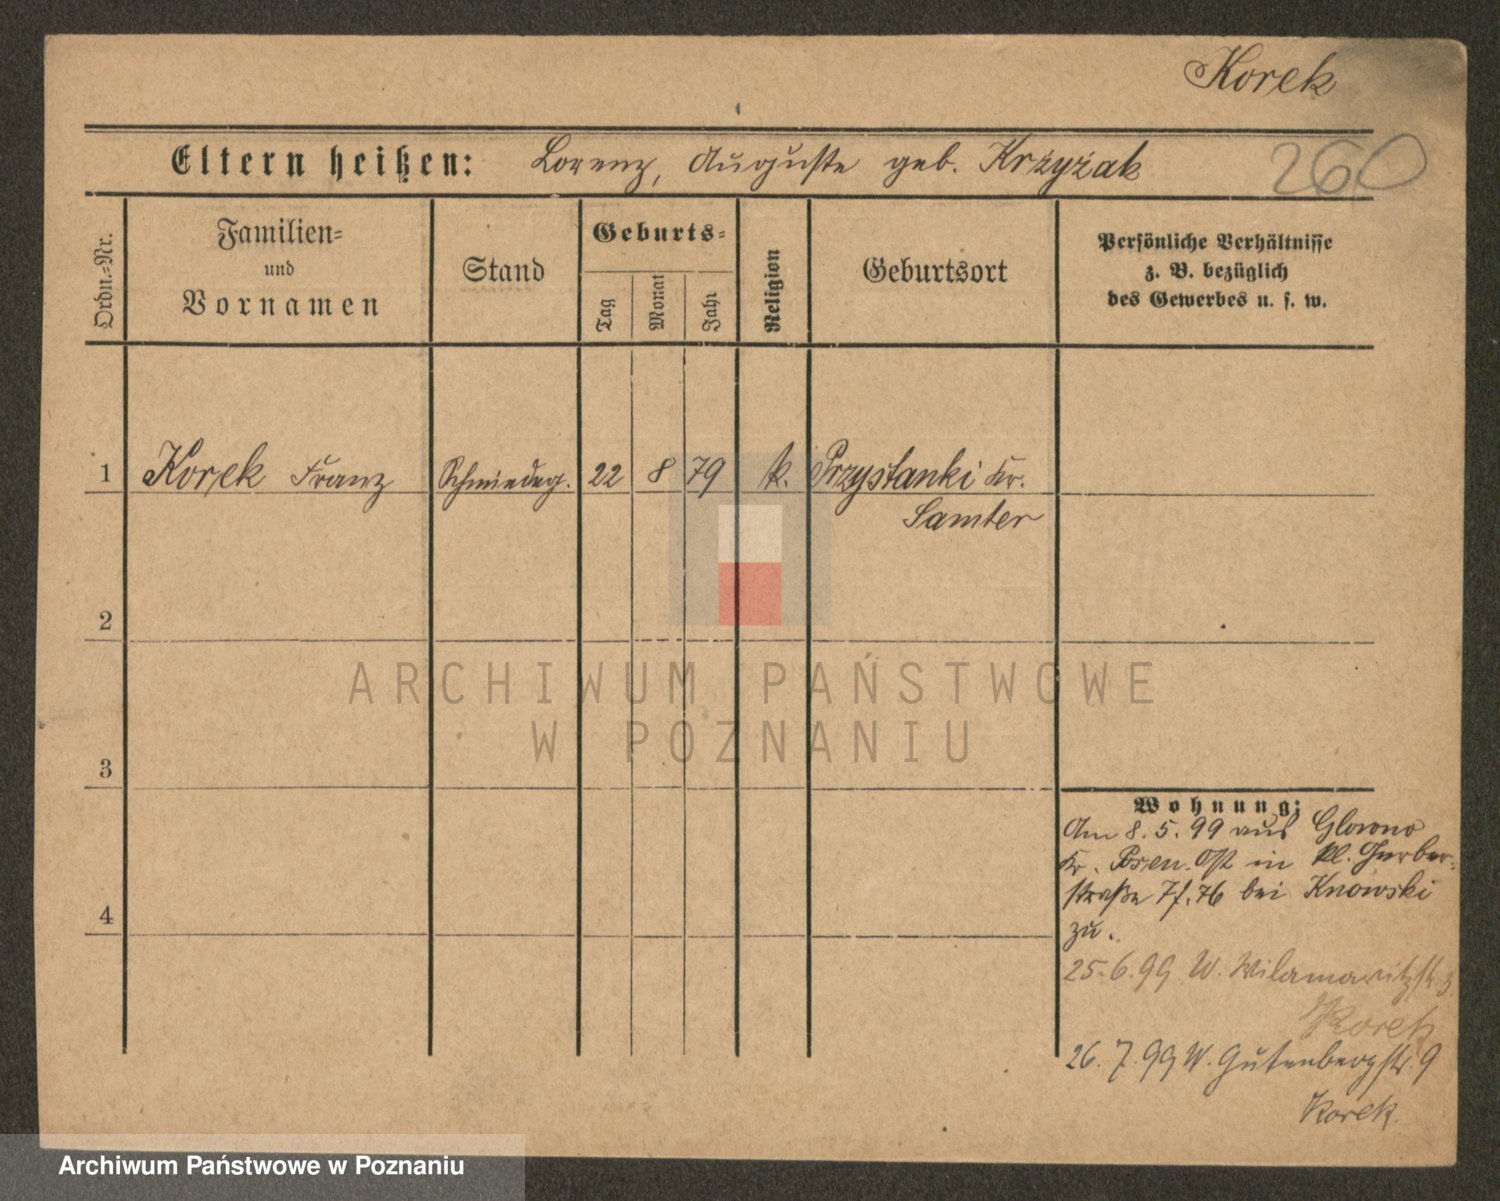 Korek
Eltern heißen: Lorenz, Auguste geb. Krzyżak
260
Ordn.=Nr.
Familien=
und
Vornamen
Stand
Geburts=
Tag
Monat
Jahr
Religion
Geburtsort
Persönliche Verhältnisse
z. B. bezüglich
des Gewerbes u. s. w.
1 Korek Franz Schmiedeg. 22 8 79 k. Przystanki Kr.
Samter
2
ARCHIWUM PAŃSTWOWE
W POZNANIU
3
Wohnung:
Am 8.5.99 aus Glowno
Kr. Posen-Ost in kl. Gerber=
straße bei
zu.
4
25.6.99 W.
Korek
26.7.99 W. Gutenbergstr. 9
Korek.
Archiwum Państwowe w Poznaniu